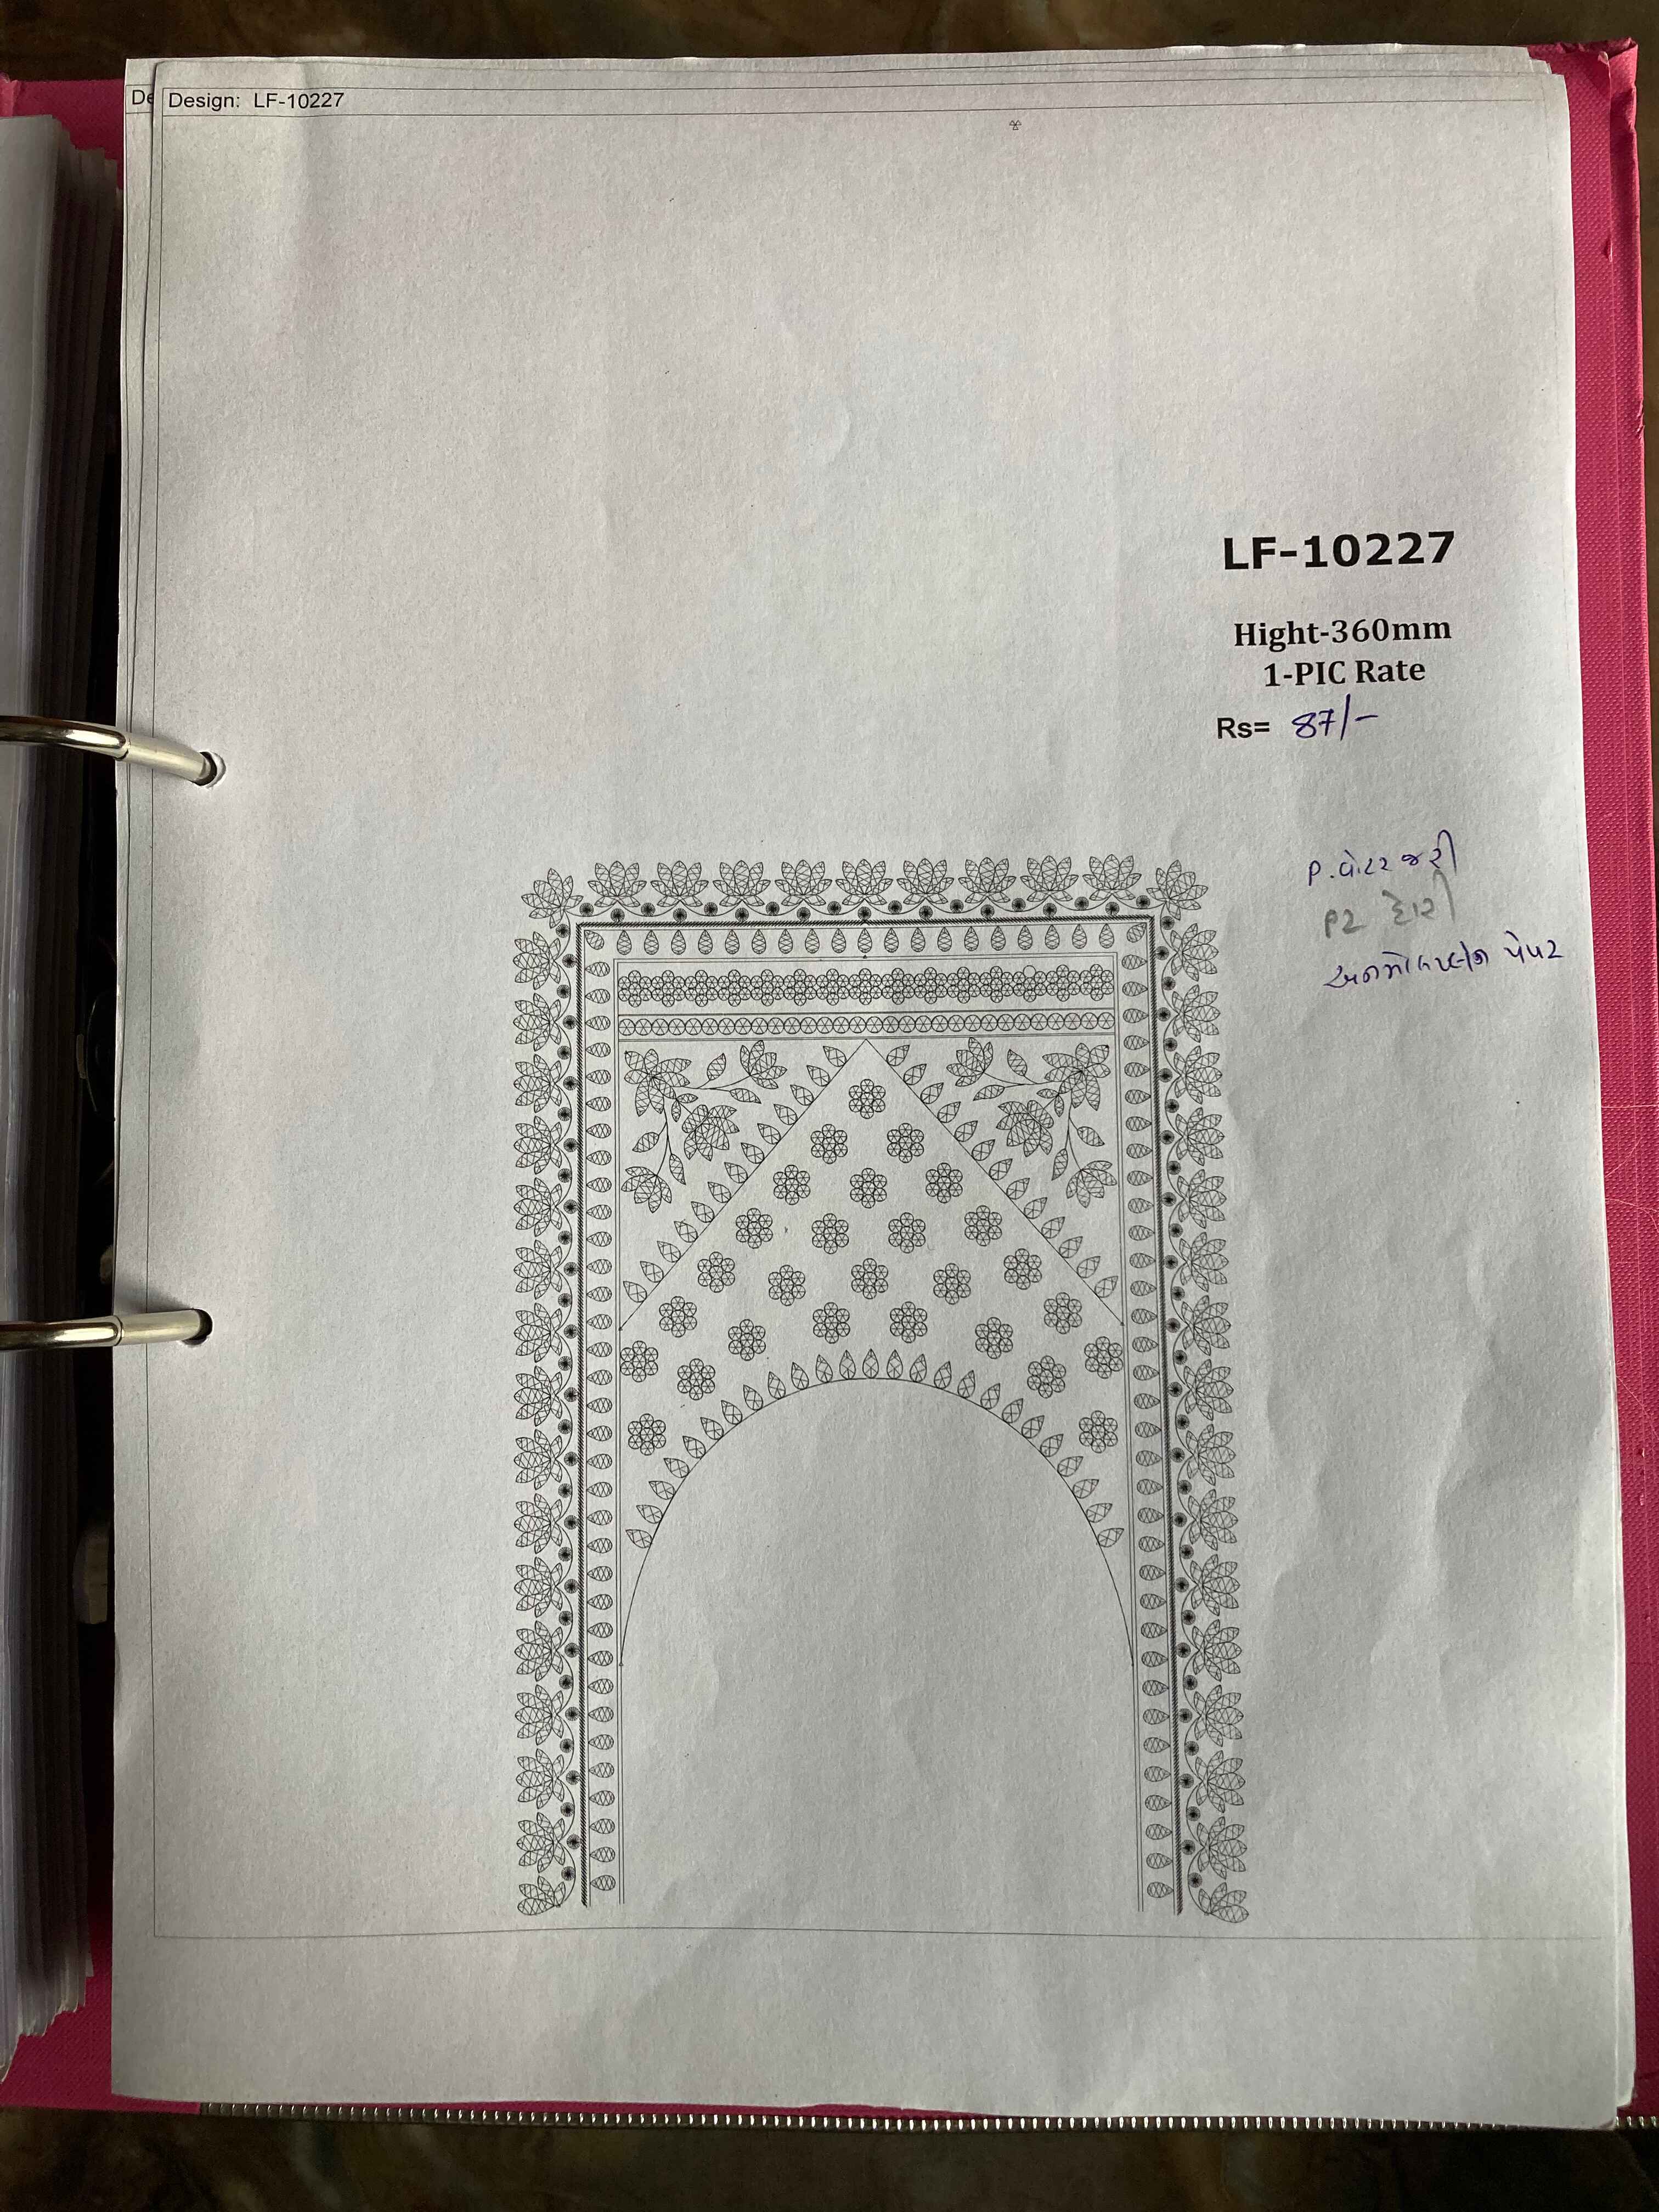 De
Design: LF-10227
LF-10227
Hight-360mm
1-PIC Rate
Rs= 87/-
P. વોટર જરી
P2 દોરી
પેપર